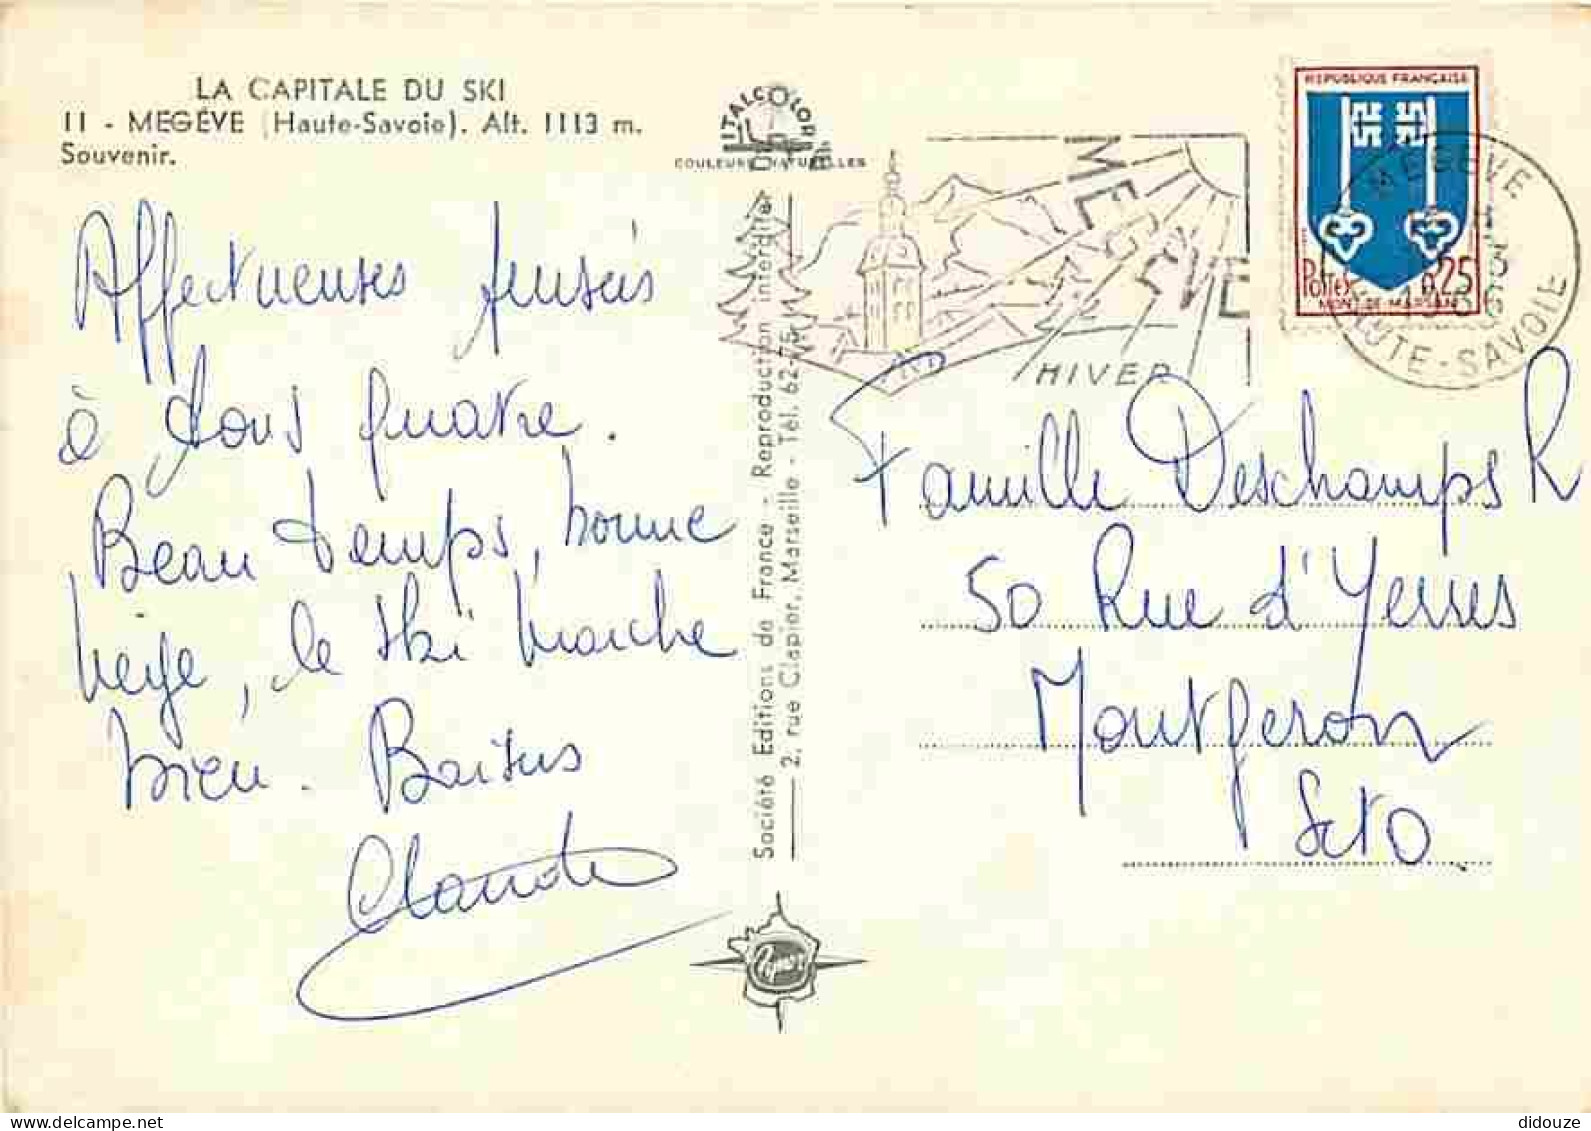 LA CAPITALE DU SKI
11 - MEGÈVE (Haute-Savoie). Alt. 1113 m.
Souvenir.
Affectueuses pensées
à tous quatre.
Beau temps, bonne
neige, le ski marche
bien. Baisers
Claude
ITALCOLOR
COULEURS NATURELLES
Société Editions de France - Reproduction interdite
2, rue Clapier, Marseille - Tél. 62-
MEGÈVE
HIVER
REPUBLIQUE FRANÇAISE
Postes 0,25
MONT-DE-MARSAN
MEGEVE
HAUTE-SAVOIE
Famille Deschamps R
50 Rue d'Yerres
Montgeron
S et O.
didouze